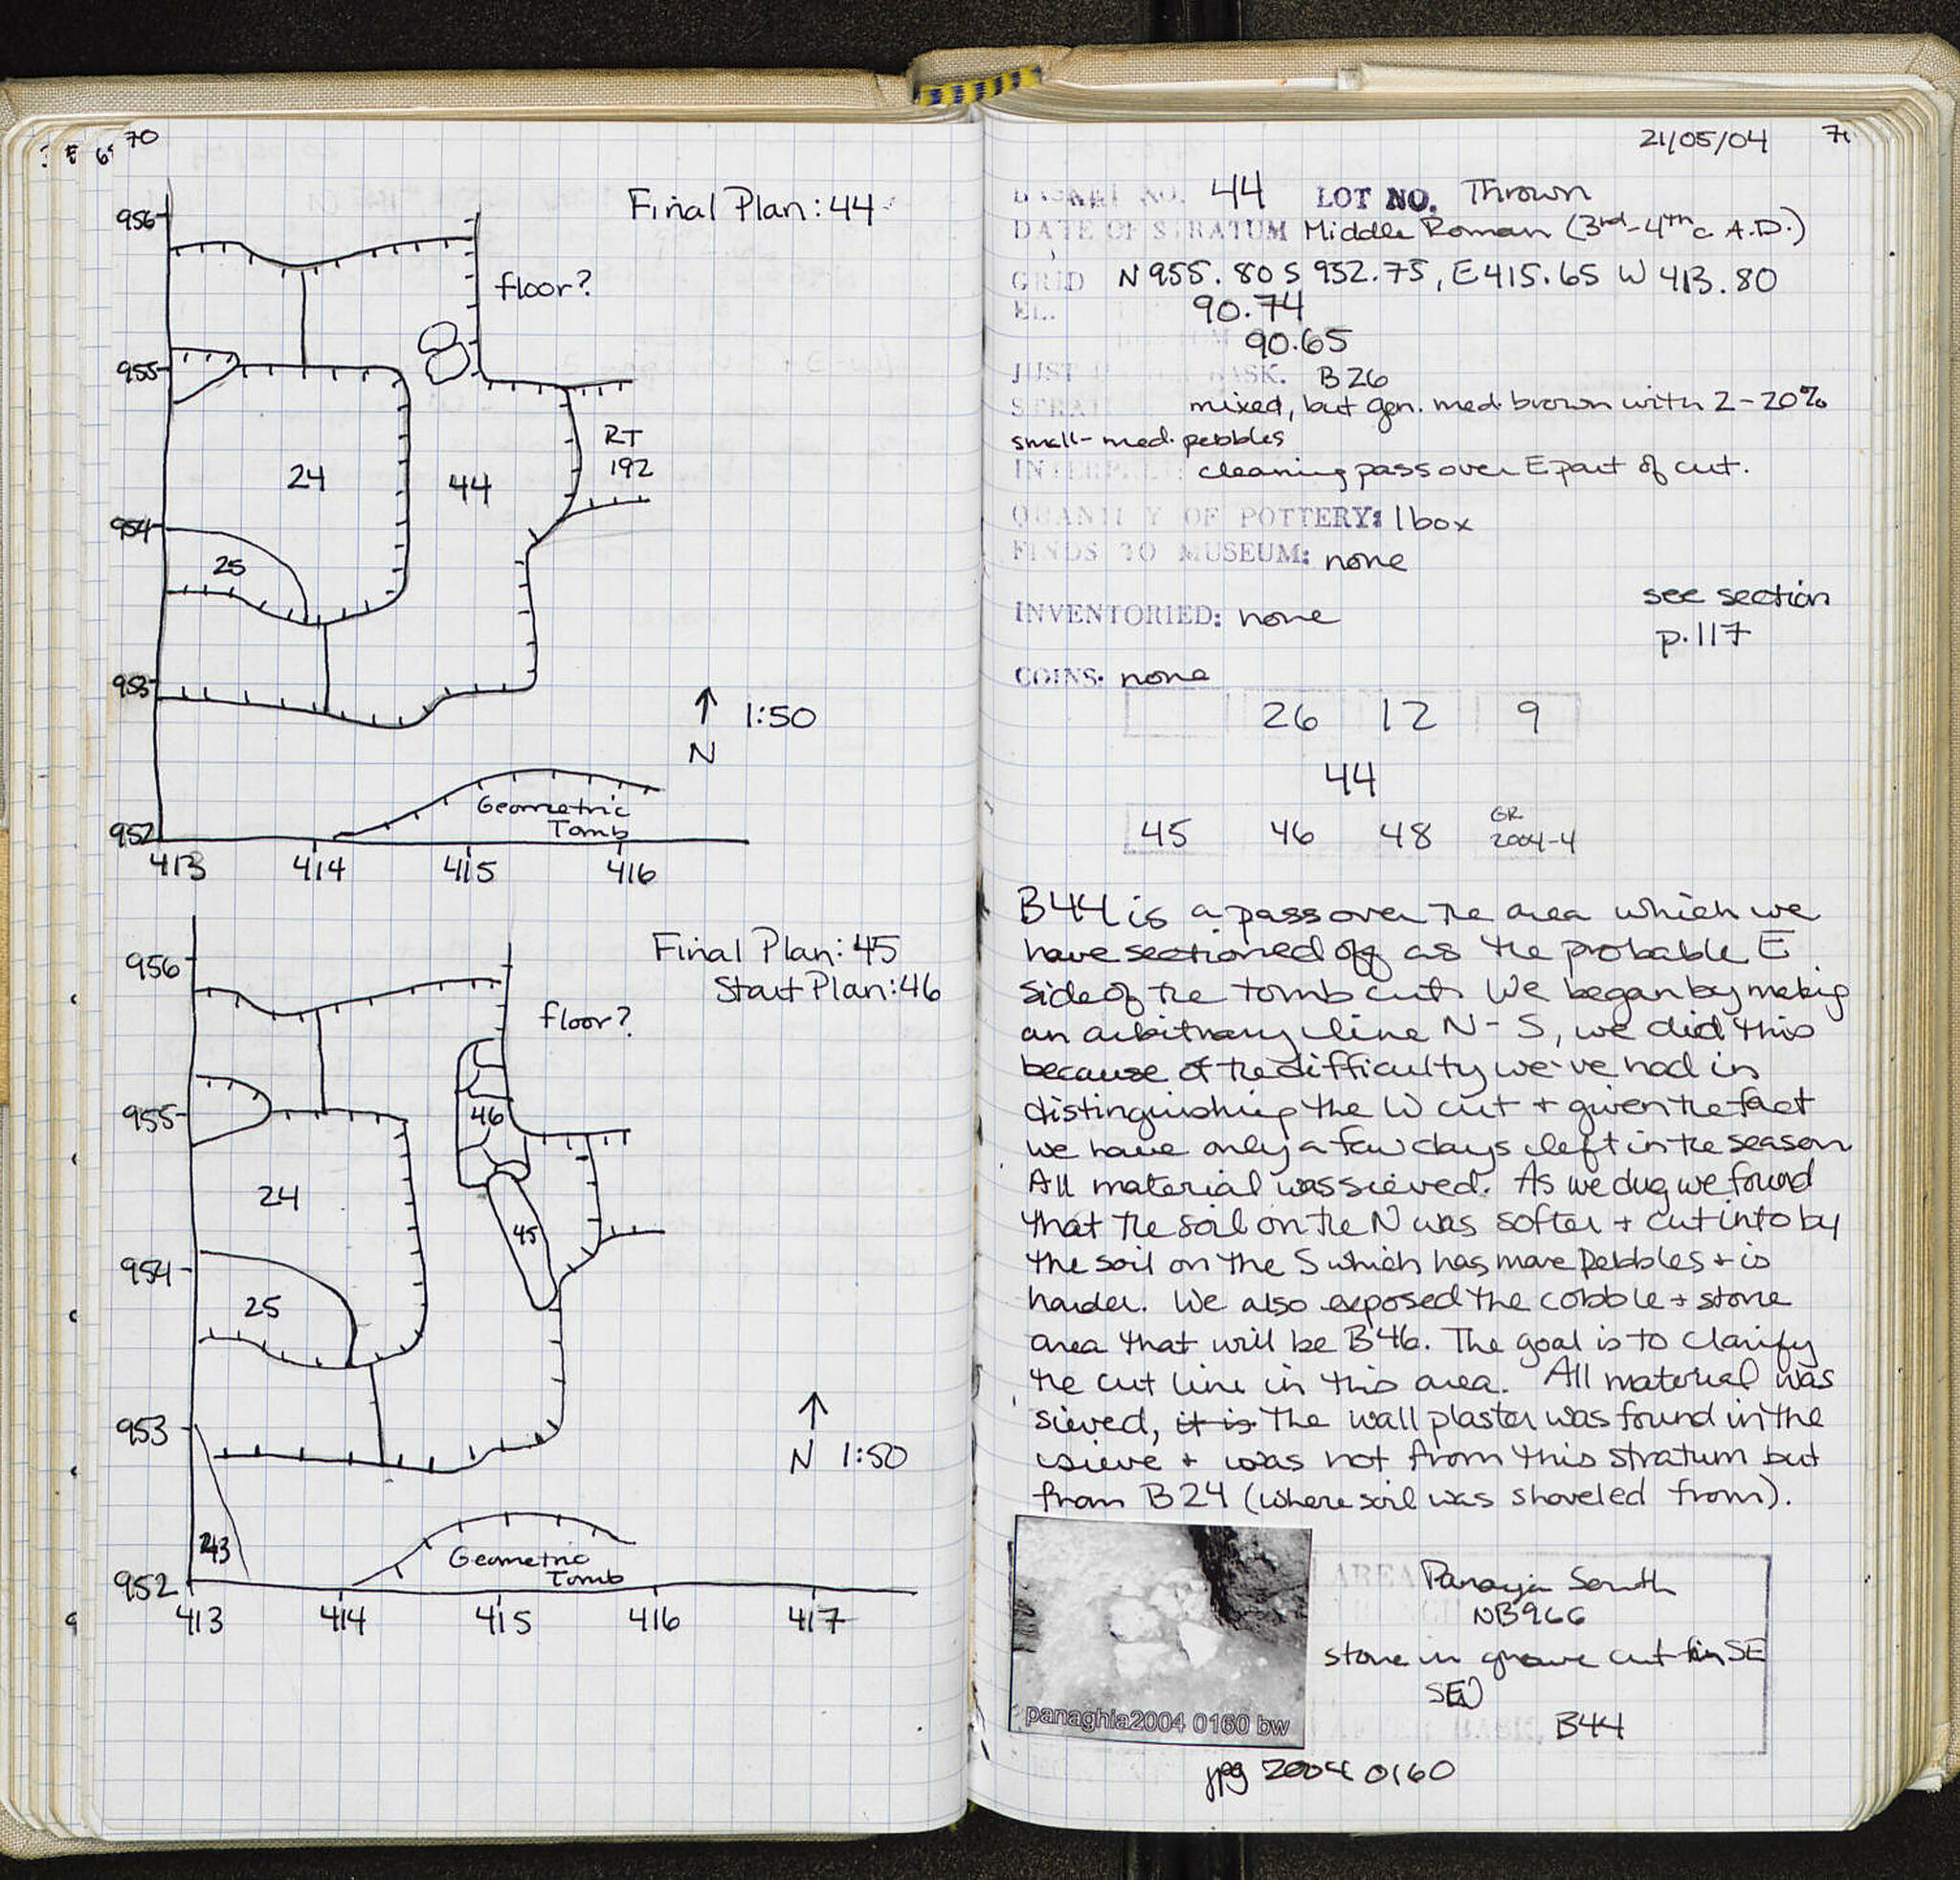 70
Final Plan: 44
956
floor?
955
RT
192
24
44
954
25
953
1:50
N
Geometric
Tomb
952
413 414 415 416
Final Plan: 45
Start Plan: 46
956
floor?
46
955
24
45
954
25
953
N 1:50
243
Geometric
Tomb
952
413 414 415 416 417
21/05/04 71
BASKET NO. 44 LOT NO. Thrown
DATE OF STRATUM Middle Roman (3rd-4th c A.D.)
GRID N 955.80 S 952.75, E 415.65 W 413.80
EL. 90.74
90.65
JUST BASK. B26
STRAT mixed, but gen. med. brown with 2-20%
small-med. pebbles
INTERPRET: cleaning pass over E part of cut.
QUANTITY OF POTTERY: 1 box
FINDS TO MUSEUM: none
see section
INVENTORIED: none
p.117
COINS: none
26 12 9
44
45 46 48 GR
2004-4
B44 is a pass over the area which we
have sectioned off as the probable E
side of the tomb cut. We began by making
an arbitrary line N-S, we did this
because of the difficulty we've had in
distinguishing the W cut + given the fact
we have only a few days left in the season
All material was sieved. As we dug we found
that the soil on the N was softer + cut into by
the soil on the S which has more pebbles + is
harder. We also exposed the cobble + stone
area that will be B46. The goal is to clarify
the cut line in this area. All material was
sieved, it is The wall plaster was found in the
sieve + was not from this stratum but
from B24 (where soil was shoveled from).
AREA Panayia South
NB966
stone in grave cut in SE
B44
panaghia2004 0160 bw
jpg 2004 0160